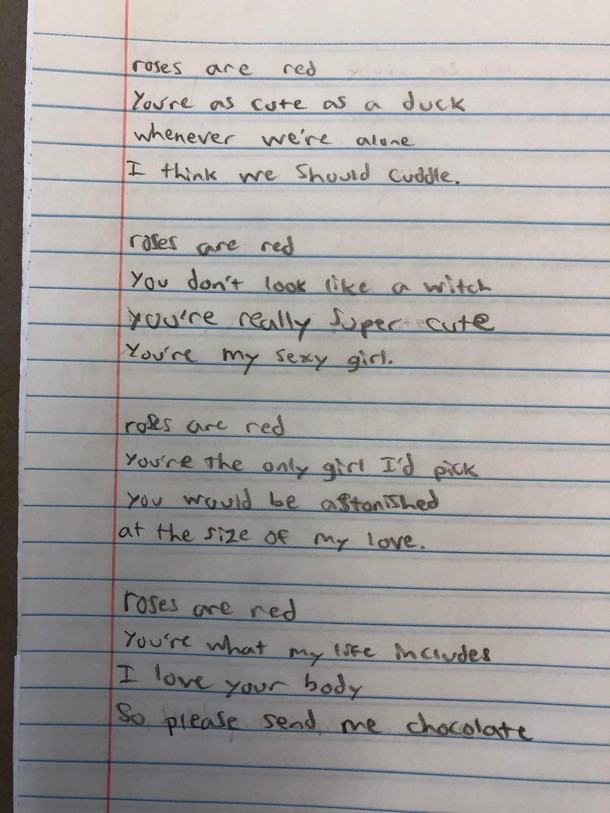 roses are red
You're as cute as a duck
whenever we're alone
I think we should cuddle.
roses are red
You don't look like a witch
you're really super cute
You're my sexy girl.
roses are red
You're the only girl I'd pick
you would be astonished
at the size of my love.
roses are red
You're what my life includes
I love your body
So please send me chocolate